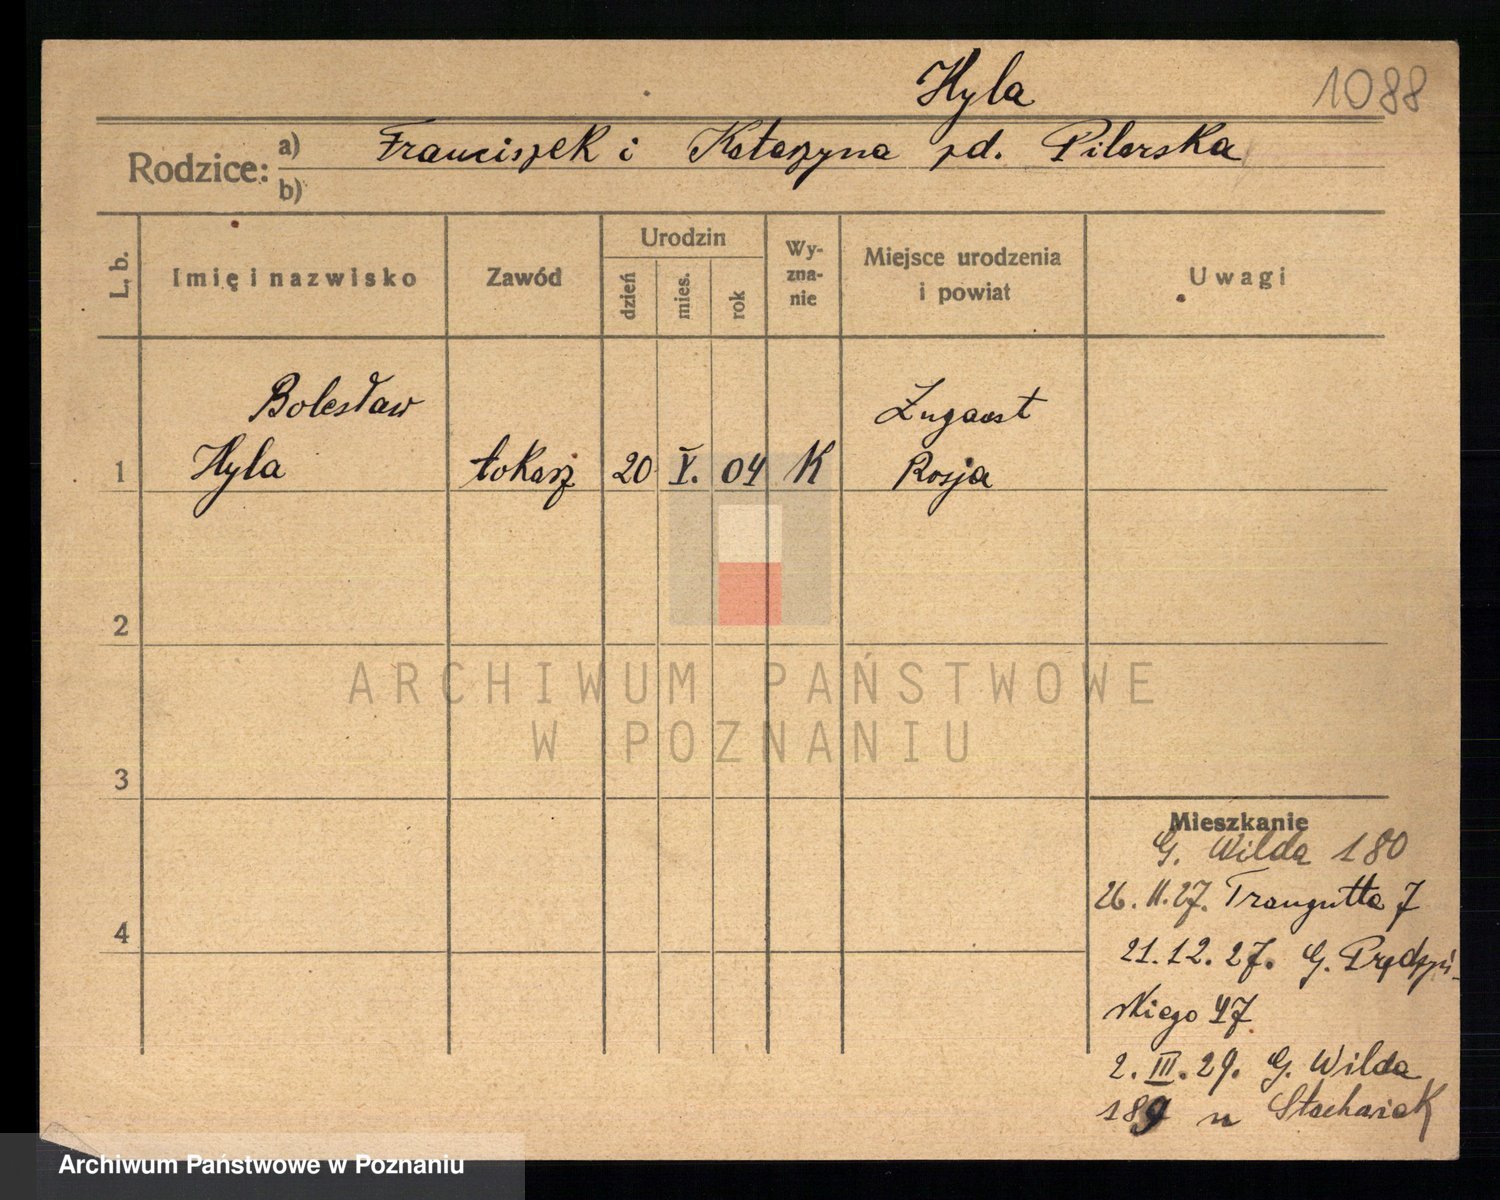 Hyla 1088
Rodzice: a) Franciszek i Katarzyna zd. Pilarska
b)
L. b. Imię i nazwisko Zawód Urodzin dzień mies. rok Wyznanie Miejsce urodzenia i powiat Uwagi
Bolesław
1 Hyla tokarz 20 V. 04 K
Rosja
2
3
4
ARCHIWUM PAŃSTWOWE
W POZNANIU
Mieszkanie
G. Wilda 180
26. II. 27. Traugutta 7
21. 12. 27. G. Prądzyń-
skiego 47
2. III. 29. G. Wilda
189 u Stachowiak
Archiwum Państwowe w Poznaniu